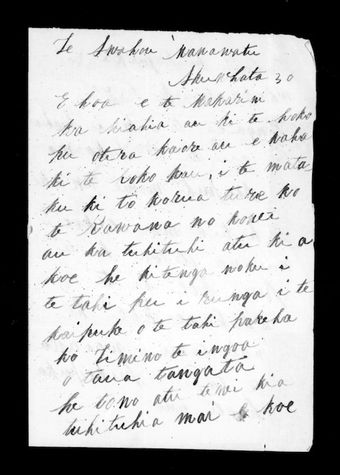 Te Awahou Manawatu
Akuhata 30
E hoa e te Makarini
ka hiahia au ki te hoko
pu otira kaore au e kaha
ki te hoko pau i te mata
ku ki to korua ture ko
te Kawana no konei
au ka tuhituhi atu ki a
koe he kitenga noku i
te tahi pu i runga i te
kaipuke o te tahi pakeha
ko Timino te ingoa
o taua tangata
he tono atu tenei kia
tuhituhia mai e koe